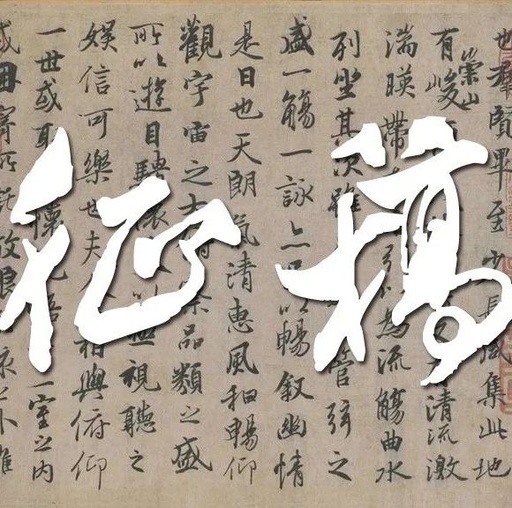 征稿
也羣賢畢至少長咸集此地
有崇山峻清流激
湍暎帶為流觴曲水
列坐其次雖管弦之
盛一觴一詠亦足以暢叙幽情
是日也天朗氣清惠風和暢仰
觀宇宙之大品類之盛
所以遊目騁懷以極視聽之
娛信可樂也夫人相與俯仰
一世或取懷一室之内
或因寄所託放浪之外雖